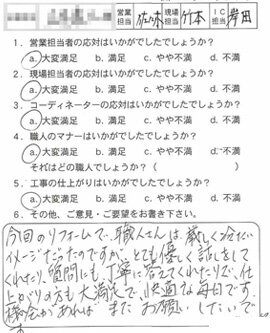 営業担当 佐々木 現場担当 竹本 IC担当 岸田
1．営業担当者の応対はいかがでしたでしょうか？
a. 大変満足 b. 満足 c. やや不満 d. 不満
2．現場担当者の応対はいかがでしたでしょうか？
a. 大変満足 b. 満足 c. やや不満 d. 不満
3．コーディネーターの応対はいかがでしたでしょうか？
a. 大変満足 b. 満足 c. やや不満 d. 不満
4．職人のマナーはいかがでしたでしょうか？
a. 大変満足 b. 満足 c. やや不満 d. 不満
それはどの職人でしょうか？（ ）
5．工事の仕上がりはいかがでしたでしょうか？
a. 大変満足 b. 満足 c. やや不満 d. 不満
6．その他、ご意見・ご要望をお書き下さい。
今回のリフォームで、職人さんは厳しく冷たい
イメージだったのですが、とても優しく話しをして
くれたり、質問にも丁寧に答えてくれたりで、仕
上がりの方も大満足で、快適な毎日です。
機会があれば、またお願いしたいで
す